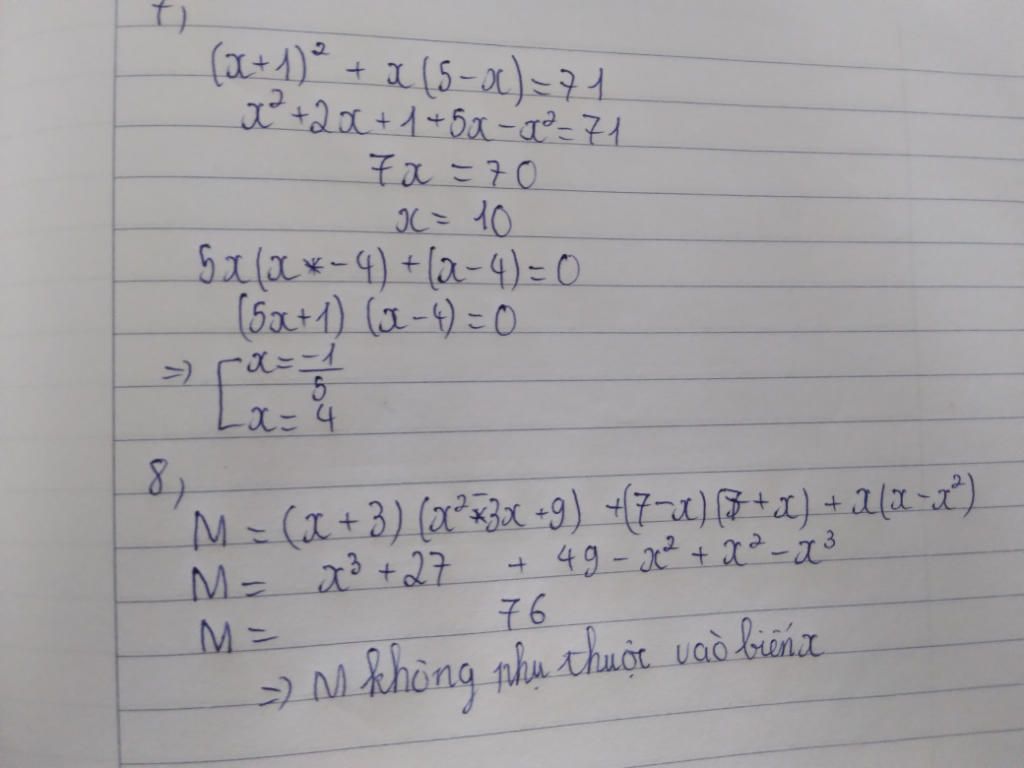 7)
(x+1)² + x(5-x)=71
x²+2x+1+5x-x²=71
7x = 70
x= 10
5x(x-4)+(x-4)=0
(5x+1) (x-4)=0
=> [ x= -1/5
x= 4
8)
M = (x+3)(x²-3x+9) +(7-x)(7+x) + x(x-x²)
M = x³+27 + 49-x²+x²-x³
M = 76
=> M không phụ thuộc vào biến x